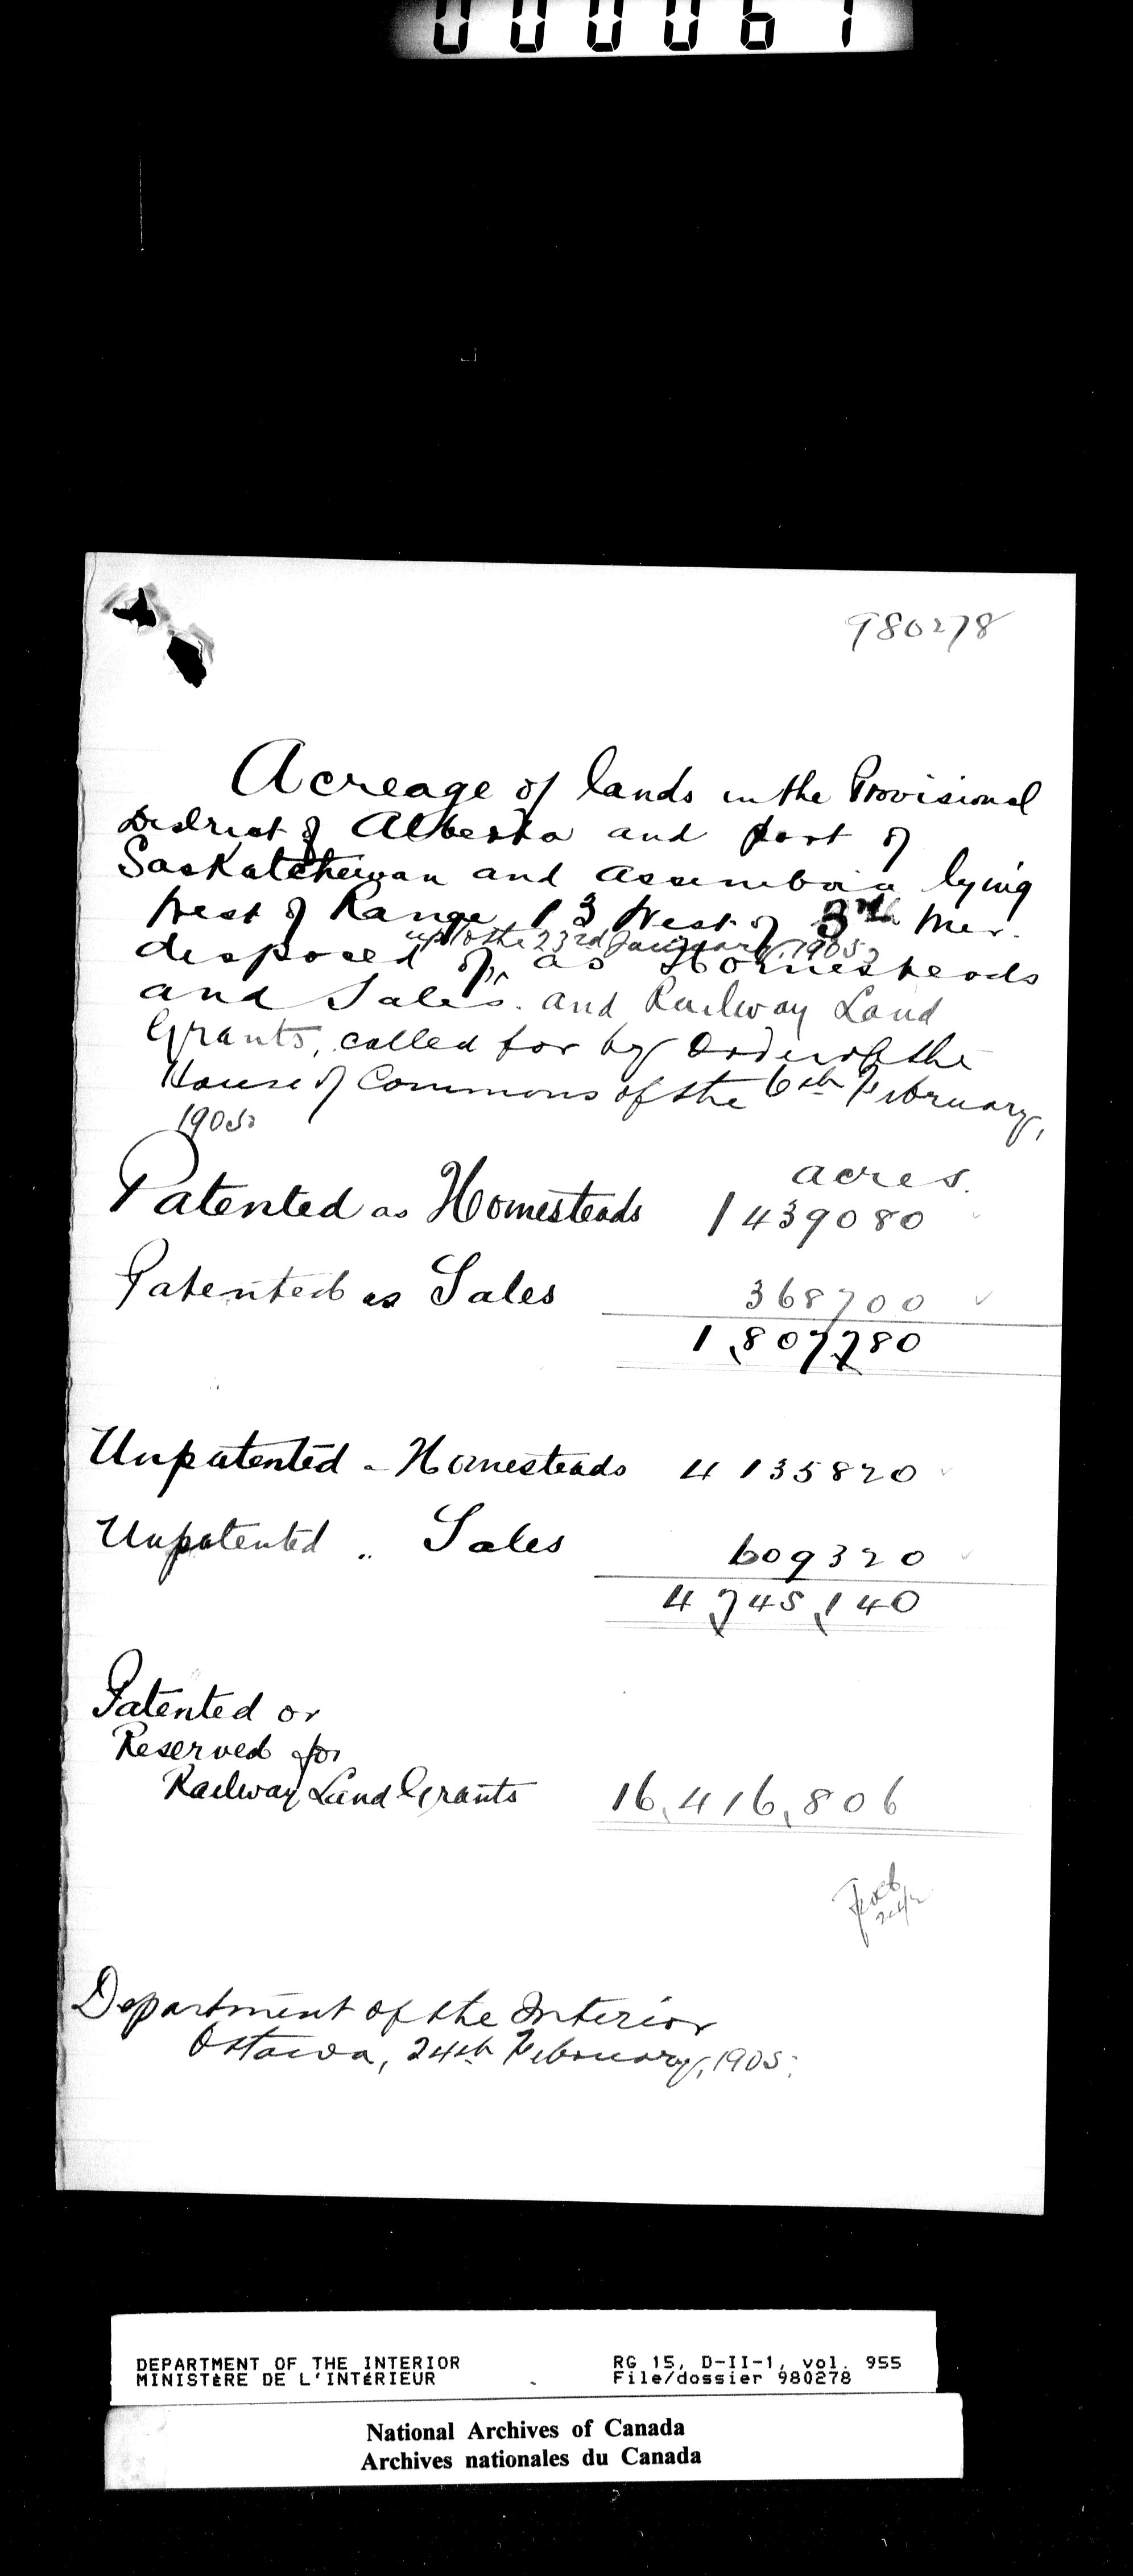 000061
980278
Acreage of lands in the Provisional
District of Alberta and part of
Saskatchewan and Assiniboia lying
West of Range 13 West of 3rd Mer.
up to the 23rd January, 1905,
disposed of, as Homesteads
and Sales. and Railway Land
Grants, called for by Order of the
House of Commons of the 6th February,
1905.
acres.
Patented as Homesteads 1439080 ✓
Patented as Sales 368700 ✓
1,807,780
Unpatented - Homesteads 4135820 ✓
Unpatented " Sales 609320 ✓
4,745,140
Patented or
Reserved for
Railway Land Grants 16,416,806
24/2
Department of the Interior
Ottawa, 24th February, 1905.
DEPARTMENT OF THE INTERIOR RG 15, D-II-1, vol. 955
MINISTÈRE DE L'INTÉRIEUR File/dossier 980278
National Archives of Canada
Archives nationales du Canada